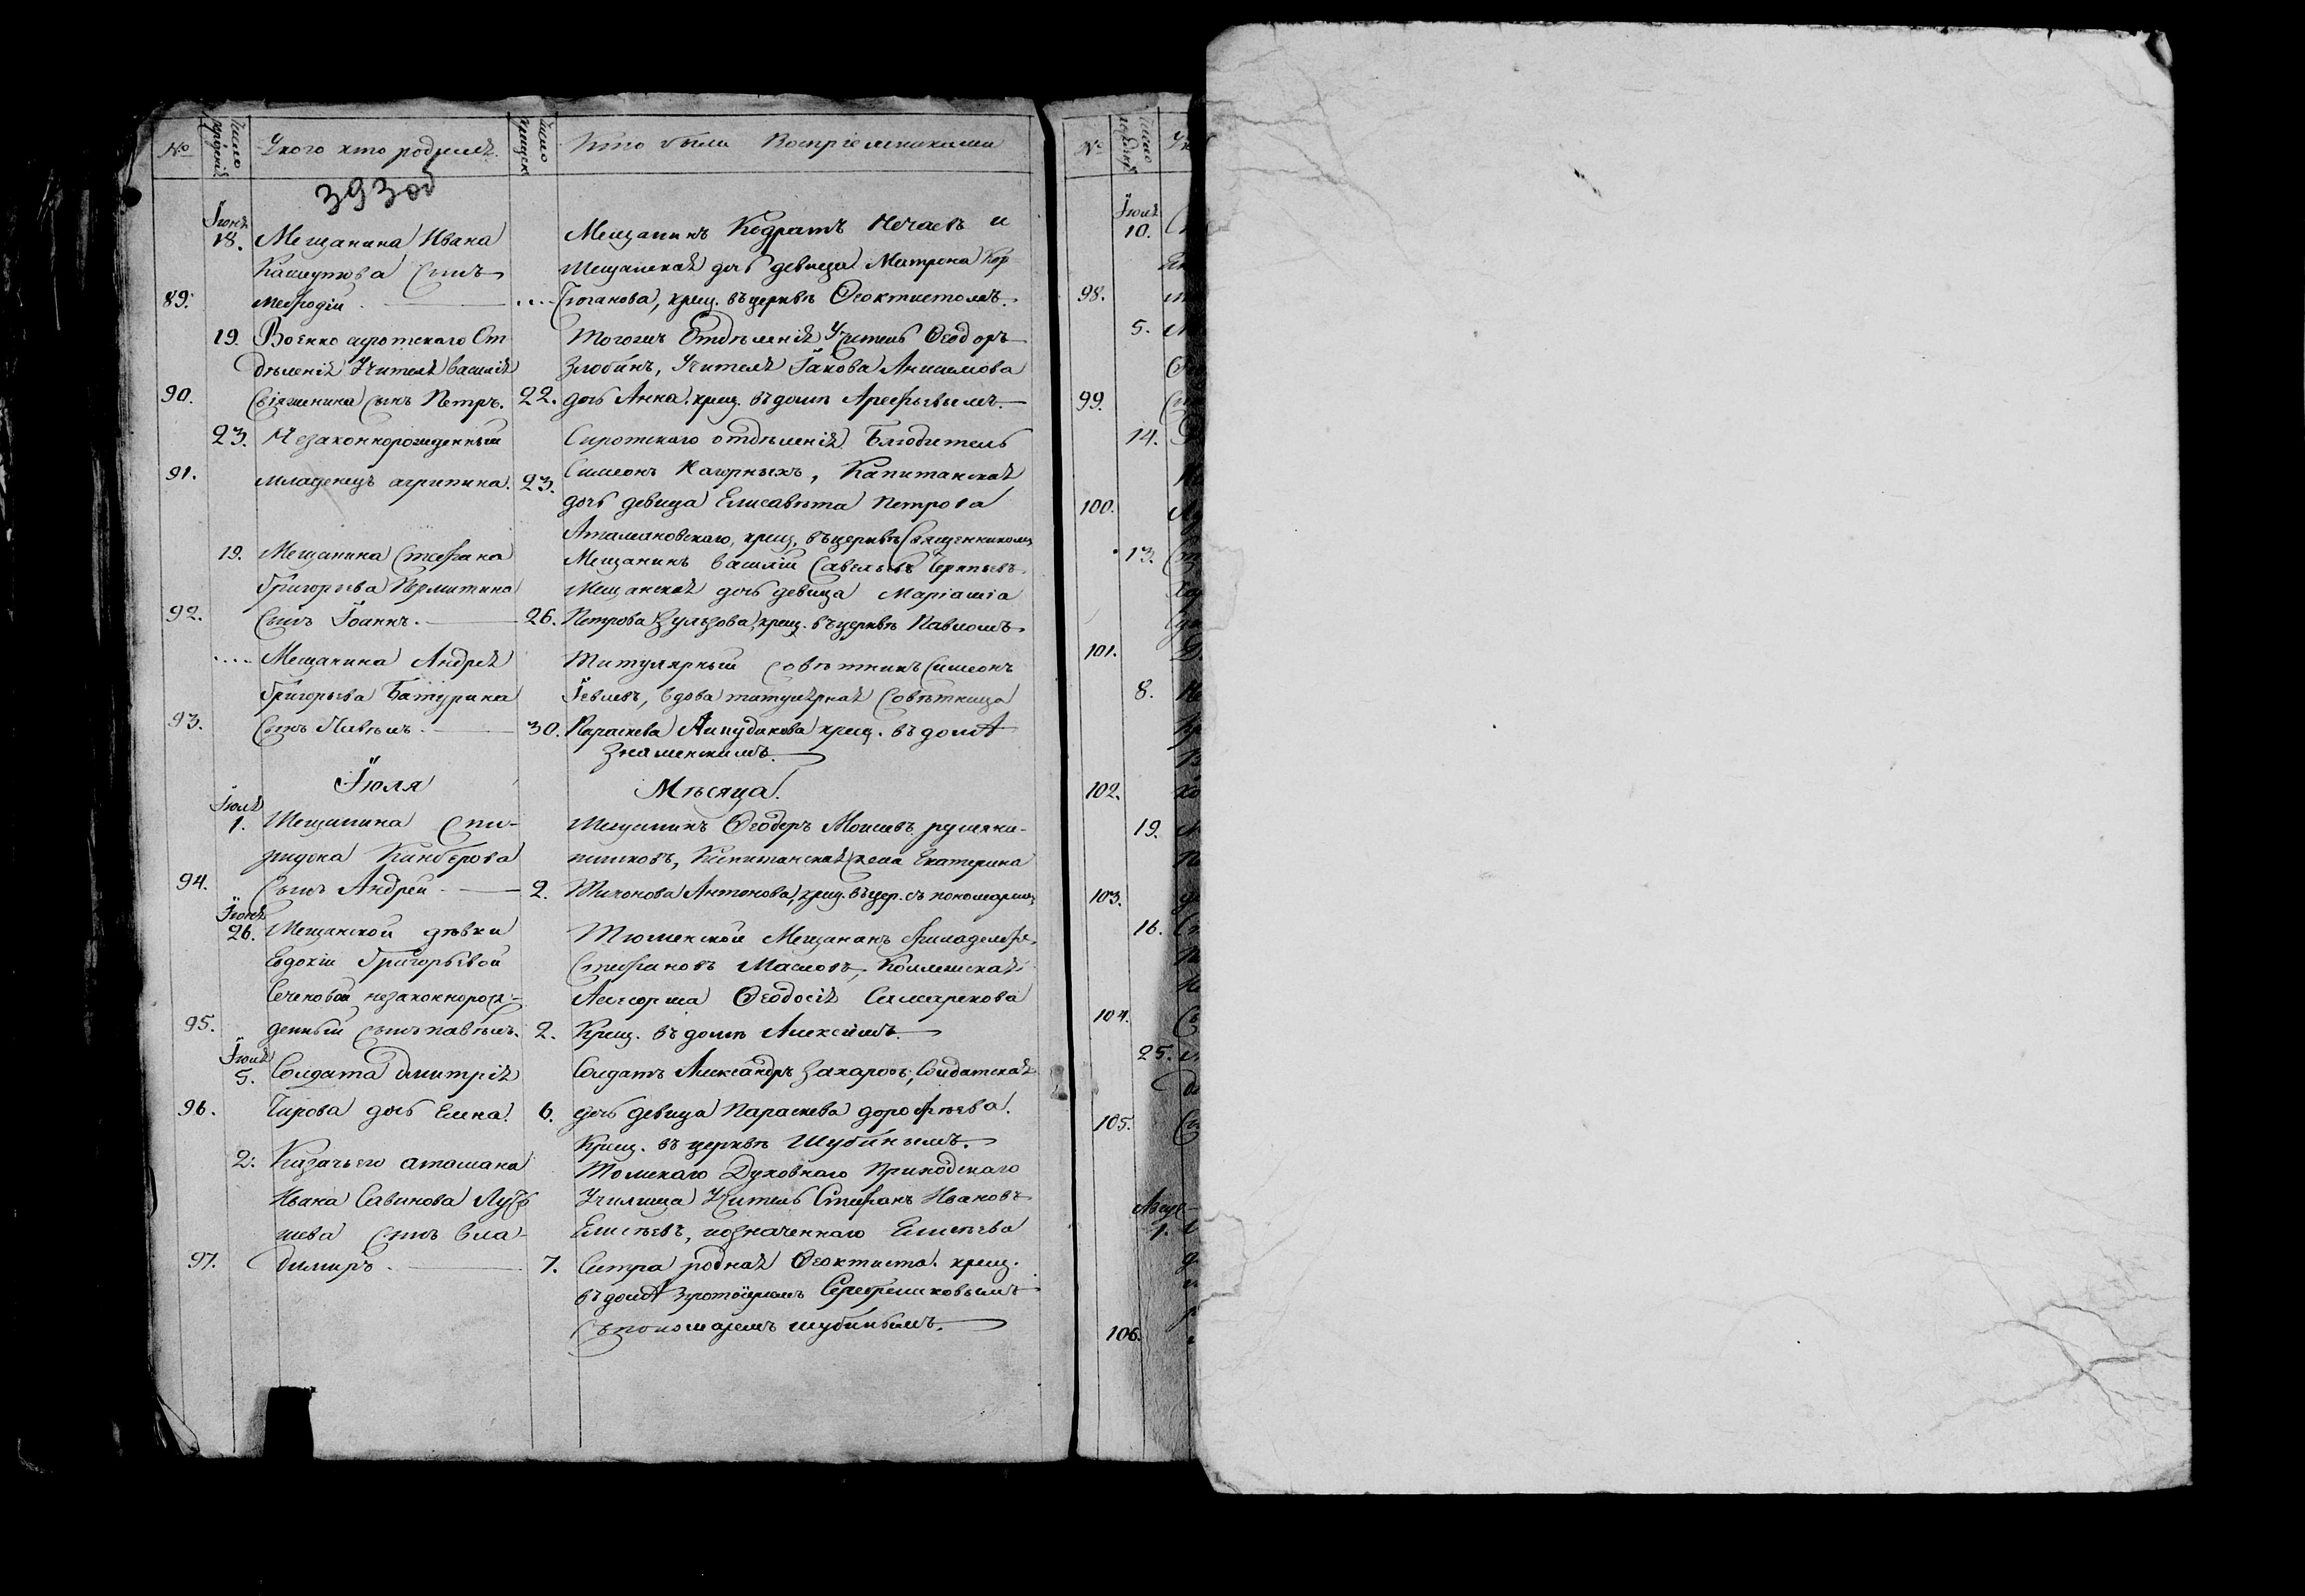 № число рожденія У кого кто родился. число крещен. Кто были Воспріемниками
393 об
Іюня
18. Мещанина Ивана
Сынъ
89. Меѳодій
Мещанинъ Кодратъ Нечаевъ и
Мещанская дочь девица Матрона
крещ. въ церквѣ Ѳеоктистомъ.
19. Военно сиротскаго От
дѣленія Учителя Василія
90. сынъ Петръ. 22.
Тогожъ Отдѣленія Учитель Ѳеодоръ
Злобинъ, Учителя Іакова Анисимова
дочь Анна. крещ. въ домѣ Арефьевымъ.
23. Незаконнорожденный
91. младенецъ агрипина. 23.
Сиротскаго отдѣленія Блюдитель
Симеонъ Нагорныхъ, Капитанская
дочь девица Елисавѣта Петрова
Атамановскаго, крещ. въ церквѣ Священникомъ
19. Мещанина Стефана
Григорьева
92. Сынъ Іоаннъ. 26.
Мещанинъ Василій Савельевъ
Мещанская дочь девица
Петрова крещ. въ церквѣ Павломъ.
.... Мещанина Андрея
Григорьева Батурина
93. Сынъ Павелъ. 30.
Титулярный совѣтникъ Симеонъ
Іевлевъ, вдова титулярная Совѣтница
Параскева крещ. въ домѣ
Знаменскимъ.
Іюля Мѣсяца.
Іюля
1. Мещанина Спи-
ридона
94. Сынъ Андрей 2.
Мещанинъ Ѳеодоръ Моисеевъ румяни-
шниковъ, Капитанская жена Екатерина
Тихонова Антонова, крещ. въ цер. съ пономаремъ
Іюня
26. Мещанской дѣвки
Евдокіи Григорьевой
незаконнорож-
95. денный сынъ павелъ. 2.
Тюменской Мещанинъ Филадельфъ
Стефановъ Масловъ,
Ѳеодосія Самарекова
Крещ. въ домѣ Алексіемъ.
Іюля
5. Солдата Дмитрія
96. дочь Елена. 6.
Солдатъ Александръ Захаровъ, Солдатская
дочь девица Параскева дорофѣева.
Крещ. въ церквѣ Шубинымъ.
2. Казачьего атамана
Ивана Савинова Луч
шева сынъ Вла-
97. димиръ 7.
Томскаго Духовнаго Приходскаго
Училища Учитель Стефанъ Ивановъ
Елисѣевъ, иозначеннаго Елисѣева
Сестра родная Ѳеоктиста. крещ.
въ домѣ протоіереомъ Серебрениковымъ
съ пономаремъ шубинымъ.
№
Іюля
10.
98.
5.
99.
14.
100.
13.
101.
8.
102.
19.
103.
16.
104.
25.
105.
1.
106.